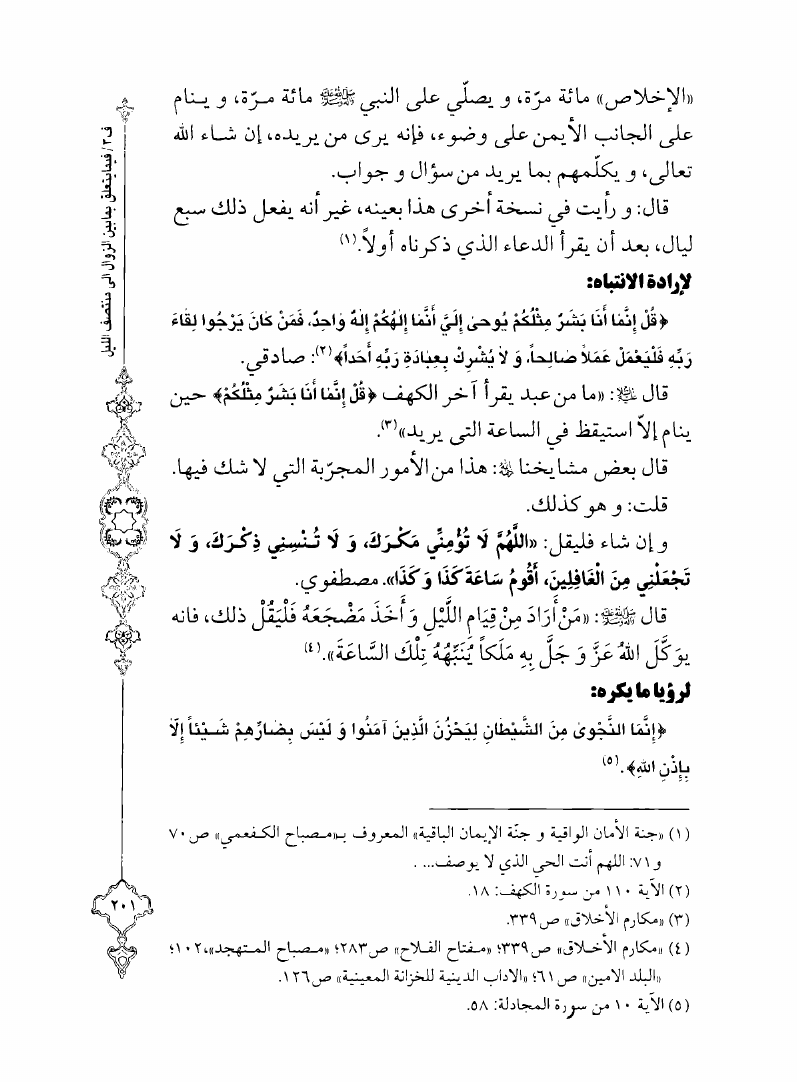 «الإخلاص» مائة مرّة، و يصلّي على النبي ﷺ مائة مـرّة، و يـنام
على الجانب الأيمن على وضوء، فإنه يرى من يريده، إن شـاء الله
تعالى، و يكلّمهم بما يريد من سؤال و جواب.
قال: و رأيت في نسخة أخرى هذا بعينه، غير أنه يفعل ذلك سبع
ليال، بعد أن يقرأ الدعاء الذي ذكرناه أولاً.(١)
لإرادة الانتباه:
﴿قُلْ إِنَّمٰا أَنَا بَشَرٌ مِثْلُكُمْ يُوحىٰ إِلَيَّ أَنَّمٰا إِلٰهُكُمْ إِلٰهٌ وٰاحِدٌ، فَمَنْ كٰانَ يَرْجُوا لِقٰاءَ
رَبِّهِ فَلْيَعْمَلْ عَمَلاً صٰالِحاً، وَ لاٰ يُشْرِكْ بِعِبٰادَةِ رَبِّهِ أَحَداً﴾(٢): صادقي.
قال ﷷ: «ما من عبد يقرأ آخر الكهف ﴿قُلْ إِنَّمٰا أَنَا بَشَرٌ مِثْلُكُمْ﴾ حين
ينام إلاّ استيقظ في الساعة التى يريد»(٣).
قال بعض مشايخنا: هذا من الأمور المجرّبة التي لا شك فيها.
قلت: و هو كذلك.
و إن شاء فليقل: «اللَّهُمَّ لَا تُؤْمِنِّي مَكْـرَكَ، وَ لَا تُـنْسِنِي ذِكْـرَكَ، وَ لَا
تَجْعَلْنِي مِنَ الْغَافِلِينَ، أَقُومُ سَاعَةَ كَذَا وَ كَذَا». مصطفوي.
قال ﷺ: «مَنْ أَرَادَ مِنْ قِيَامِ اللَّيْلِ وَ أَخَذَ مَضْجَعَهُ فَلْيَقُلْ ذلك، فانه
يوَكَّلَ اللهُ عَزَّ وَ جَلَّ بِهِ مَلَكاً يُنَبِّهُهُ تِلْكَ السَّاعَةَ».(٤)
لرؤيا ما يكره:
﴿إِنَّمَا النَّجْوىٰ مِنَ الشَّيْطٰانِ لِيَحْزُنَ الَّذِينَ آمَنُوا وَ لَيْسَ بِضٰارِّهِمْ شَـيْئاً إِلّٰا
بِإِذْنِ اللهِ﴾.(٥)
(١) «جنة الأمان الواقية و جنّة الإيمان الباقية» المعروف بـ«مـصباح الكـفعمي» ص ٧٠
و ٧١: اللهم أنت الحي الذي لا يوصف... .
(٢) الآية ١١٠ من سورة الكهف: ١٨.
(٣) «مكارم الأخلاق» ص ٣٣٩.
(٤) «مكارم الأخـلاق» ص ٣٣٩؛ «مـفتاح الفـلاح» ص ٢٨٣؛ «مـصباح المـتهجد»، ١٠٢؛
«البلد الامين» ص ٦١؛ «الاداب الدينية للخزانة المعينية» ص ١٢٦.
(٥) الآية ١٠ من سورة المجادلة: ٥٨.
ف٣/ فيما يتعلق بما بين الزوال الى منتصف الليل
٢٠١